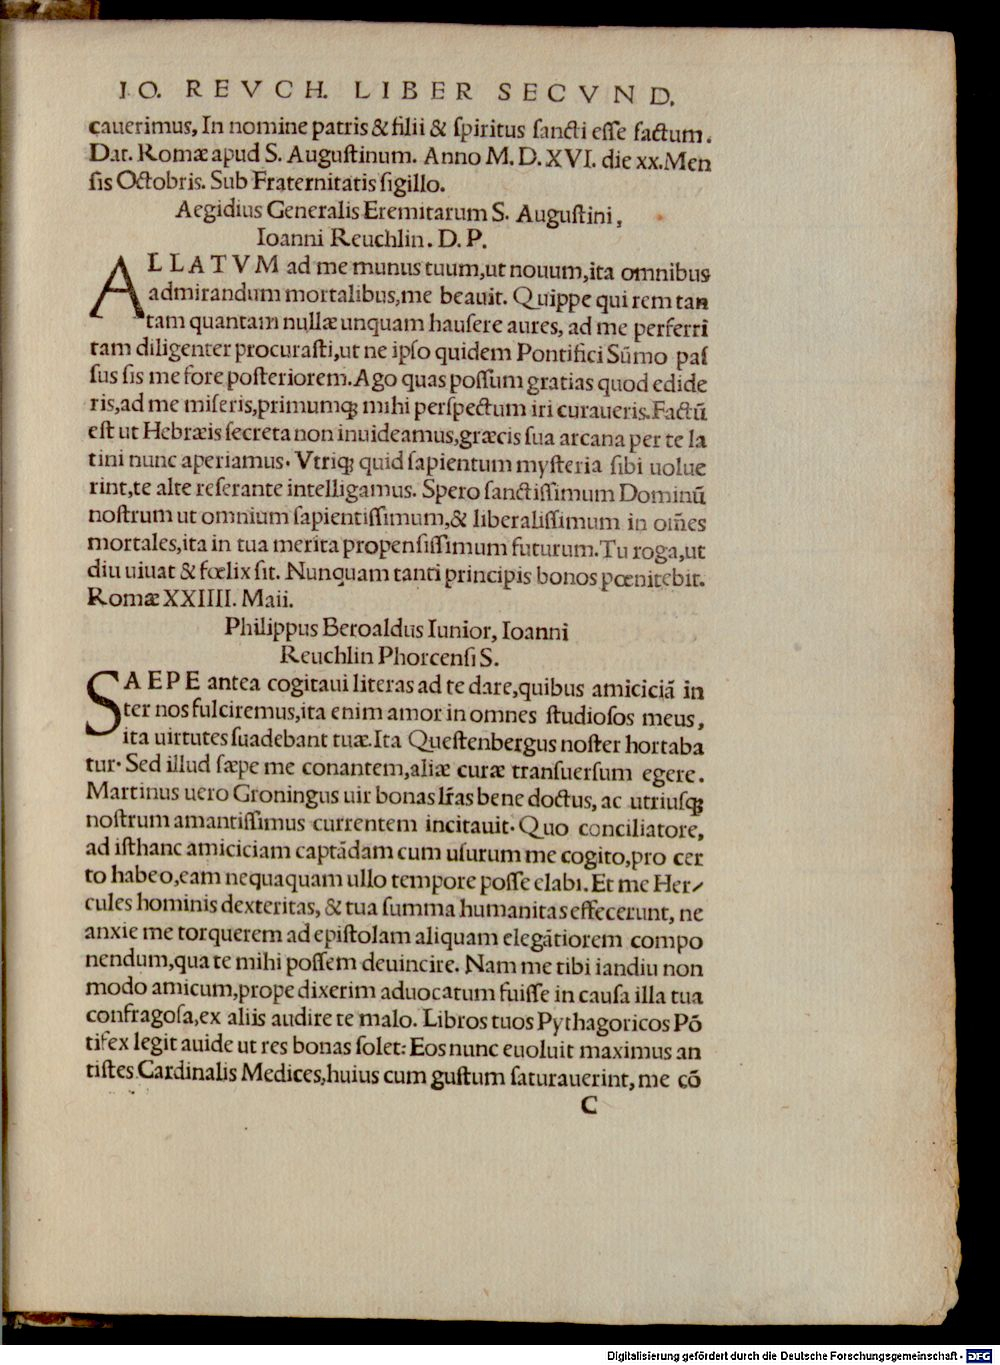 IO. REVCH. LIBER SECVND.
cauerimus, In nomine patris & filii & ſpiritus ſancti eſſe factum.
Dat. Romæ apud S. Auguſtinum. Anno M. D. XVI. die xx. Men
ſis Octobris. Sub Fraternitatis ſigillo.
Aegidius Generalis Eremitarum S. Auguſtini,
Ioanni Reuchlin. D. P.
ALLATVM ad me munus tuum, ut nouum, ita omnibus
admirandum mortalibus, me beauit. Quippe qui rem tan
tam quantam nullæ unquam hauſere aures, ad me perferri
tam diligenter procuraſti, ut ne ipſo quidem Pontifici Sūmo paſ
ſus ſis me fore poſteriorem. Ago quas poſſum gratias quod edide
ris, ad me miſeris, primumqꝫ mihi perſpectum iri curaueris. Factū
eſt ut Hebræis ſecreta non inuideamus, græcis ſua arcana per te la
tini nunc aperiamus. Vtriqꝫ quid ſapientum myſteria ſibi uolue
rint, te alte reſerante intelligamus. Spero ſanctiſſimum Dominū
noſtrum ut omnium ſapientiſſimum, & liberaliſſimum in om̄es
mortales, ita in tua merita propenſiſſimum futurum. Tu roga, ut
diu uiuat & fœlix ſit. Nunquam tanti principis bonos pœnitebit.
Romæ XXIIII. Maii.
Philippus Beroaldus Iunior, Ioanni
Reuchlin Phorcenſi S.
SAEPE antea cogitaui literas ad te dare, quibus amiciciā in
ter nos fulciremus, ita enim amor in omnes ſtudioſos meus,
ita uirtutes ſuadebant tuæ. Ita Queſtenbergus noſter hortaba
tur. Sed illud ſæpe me conantem, aliæ curæ tranſuerſum egere.
Martinus uero Groningus uir bonas lr̄as bene doctus, ac utriuſqꝫ
noſtrum amantiſſimus currentem incitauit. Quo conciliatore,
ad iſthanc amiciciam captādam cum uſurum me cogito, pro cer
to habeo, eam nequaquam ullo tempore poſſe elabi. Et me Her⸗
cules hominis dexteritas, & tua ſumma humanitas effecerunt, ne
anxie me torquerem ad epiſtolam aliquam elegātiorem compo
nendum, qua te mihi poſſem deuincire. Nam me tibi iandiu non
modo amicum, prope dixerim aduocatum fuiſſe in cauſa illa tua
confragoſa, ex aliis audire te malo. Libros tuos Pythagoricos Pō
tifex legit auide ut res bonas ſolet: Eos nunc euoluit maximus an
tiſtes Cardinalis Medices, huius cum guſtum ſaturauerint, me cō
C
Digitalisierung gefördert durch die Deutsche Forschungsgemeinschaft - DFG